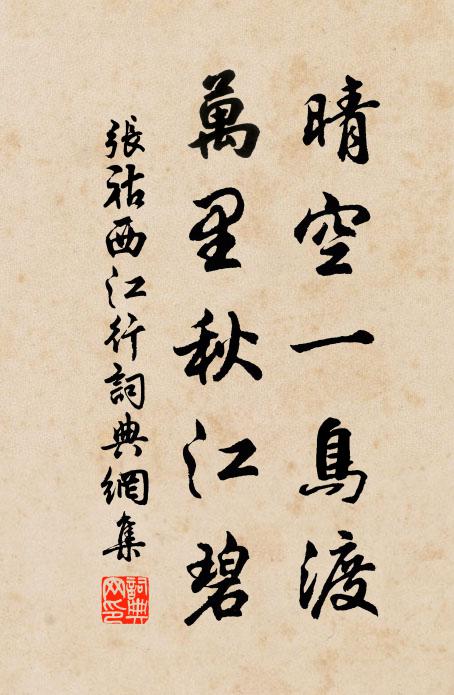 晴空一鳥渡
萬里秋江碧
張祜西江行詞典網集
詞典
网印